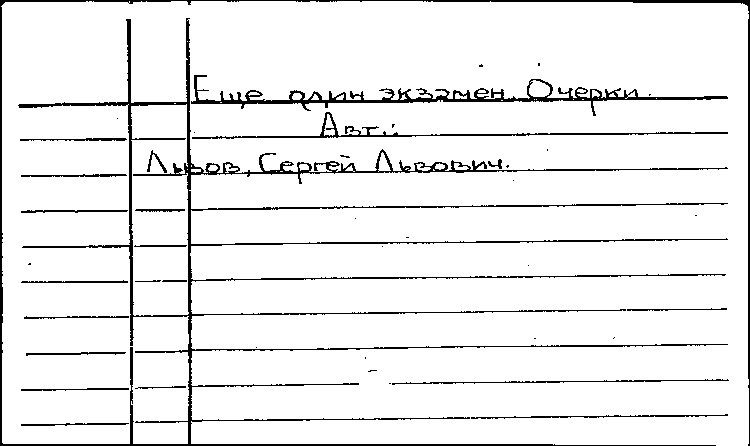 Еще один экзамен. Очерки.
Авт.:
Львов, Сергей Львович.